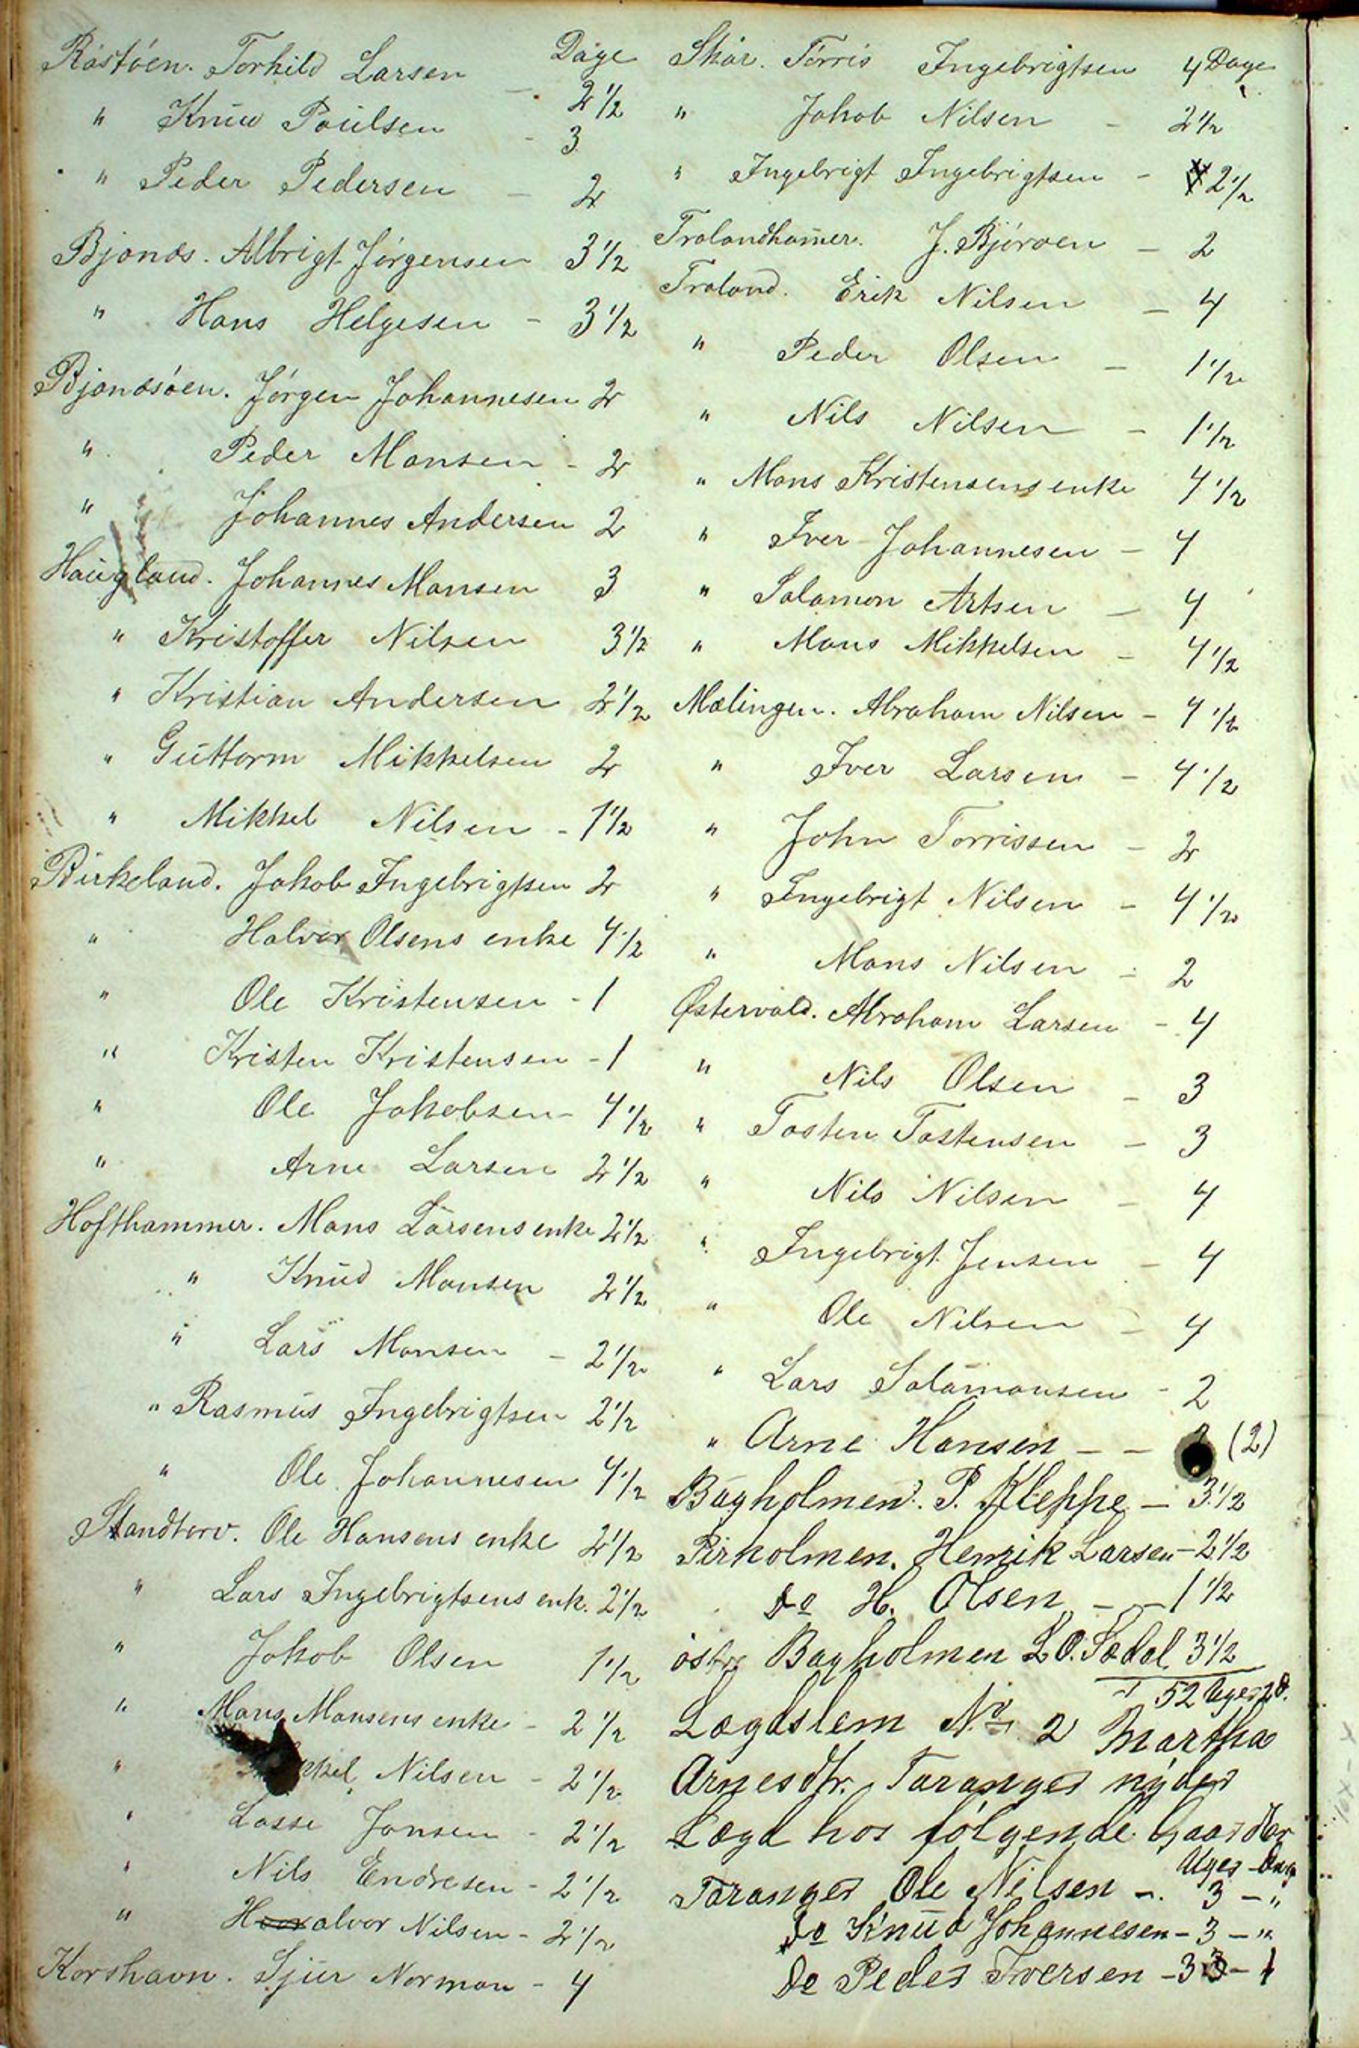 Dage
Rostöen. Torkild Larsen - 2 1/2
" Knud Poulsen - 3
" Peder Pedersen - 2
Bjonæs. Albrigt Jörgensen 3 1/2
" Hans Helgesen - 3 1/2
Bjonæsöen. Jörgen Johannesen 2
" Peder Monsen - 2
" Johannes Andersen 2
Haugland. Johannes Monsen 3
" Kristoffer Nilsen 3 1/2
" Kristian Andersen 2 1/2
" Guttorm Mikkelsen 2
" Mikkel Nilsen - 1 1/2
Birkeland. Jakob Ingebrigtsen 2
" Halvor Olsens enke 4 1/2
" Ole Kristensen - 1
" Kristen Kristensen - 1
" Ole Jakobsen - 4 1/2
" Arne Larsen 2 1/2
Hofthammer. Mons Larsens enke 2 1/2
" Knud Monsen 2 1/2
" Lars Monsen - 2 1/2
" Rasmus Ingebrigtsen 2 1/2
" Ole Johannesen 4 1/2
Standtorv. Ole Hansens enke 2 1/2
" Lars Ingebrigtsens enk. 2 1/2
" Jakob Olsen 1 1/2
" Mons Monsens enke - 2 1/2
" Nilsen - 2 1/2
" Lasse Jonsen - 2 1/2
" Nils Endresen - 2 1/2
" Halvor Nilsen - 2 1/2
Korshavn. Sjur Norman - 4
Skar. Törris Ingebrigtsen 4 Dage
" Jakob Nilsen - 2 1/2
" Ingebrigt Ingebrigtsen - 2 1/2
Trolandhamer. J. Björoen - 2
Troland. Erik Nilsen - 4
" Peder Olsen - 1 1/2
" Nils Nilsen - 1 1/2
" Mons Kristensens enke 4 1/2
" Iver Johannesen - 4
" Salamon Artsen - 4
" Mons Mikkelsen - 4 1/2
Mælingen. Abraham Nilsen - 4 1/2
" Iver Larsen - 4 1/2
" John Torrissen - 2
" Ingebrigt Nilsen - 4 1/2
" Mons Nilsen - 2
Östervold. Abraham Larsen - 4
" Nils Olsen - 3
" Tosten Tostensen - 3
" Nils Nilsen - 4
" Ingebrigt Jensen - 4
" Ole Nilsen - 4
" Lars Salamonsen - 2
" Arne Hansen - - (2)
Bagholmen. P. Kleppe - 3 1/2
Pirholmen. Henrik Larsen - 2 1/2
do H. Olsen - - 1 1/2
östr Bagholmen L.O. Sædal 3 1/2
52 Uger 2 d.
Lægdslem No 2 Martha
Arnesdtr. Taranger nÿder
Lægd hos fölgende Gaardbr
Uger - Dage
Taranger Ole Nilsen -. 3 - "
do Knud Johannesen - 3 - "
do Peder Iversen - 3 - 1